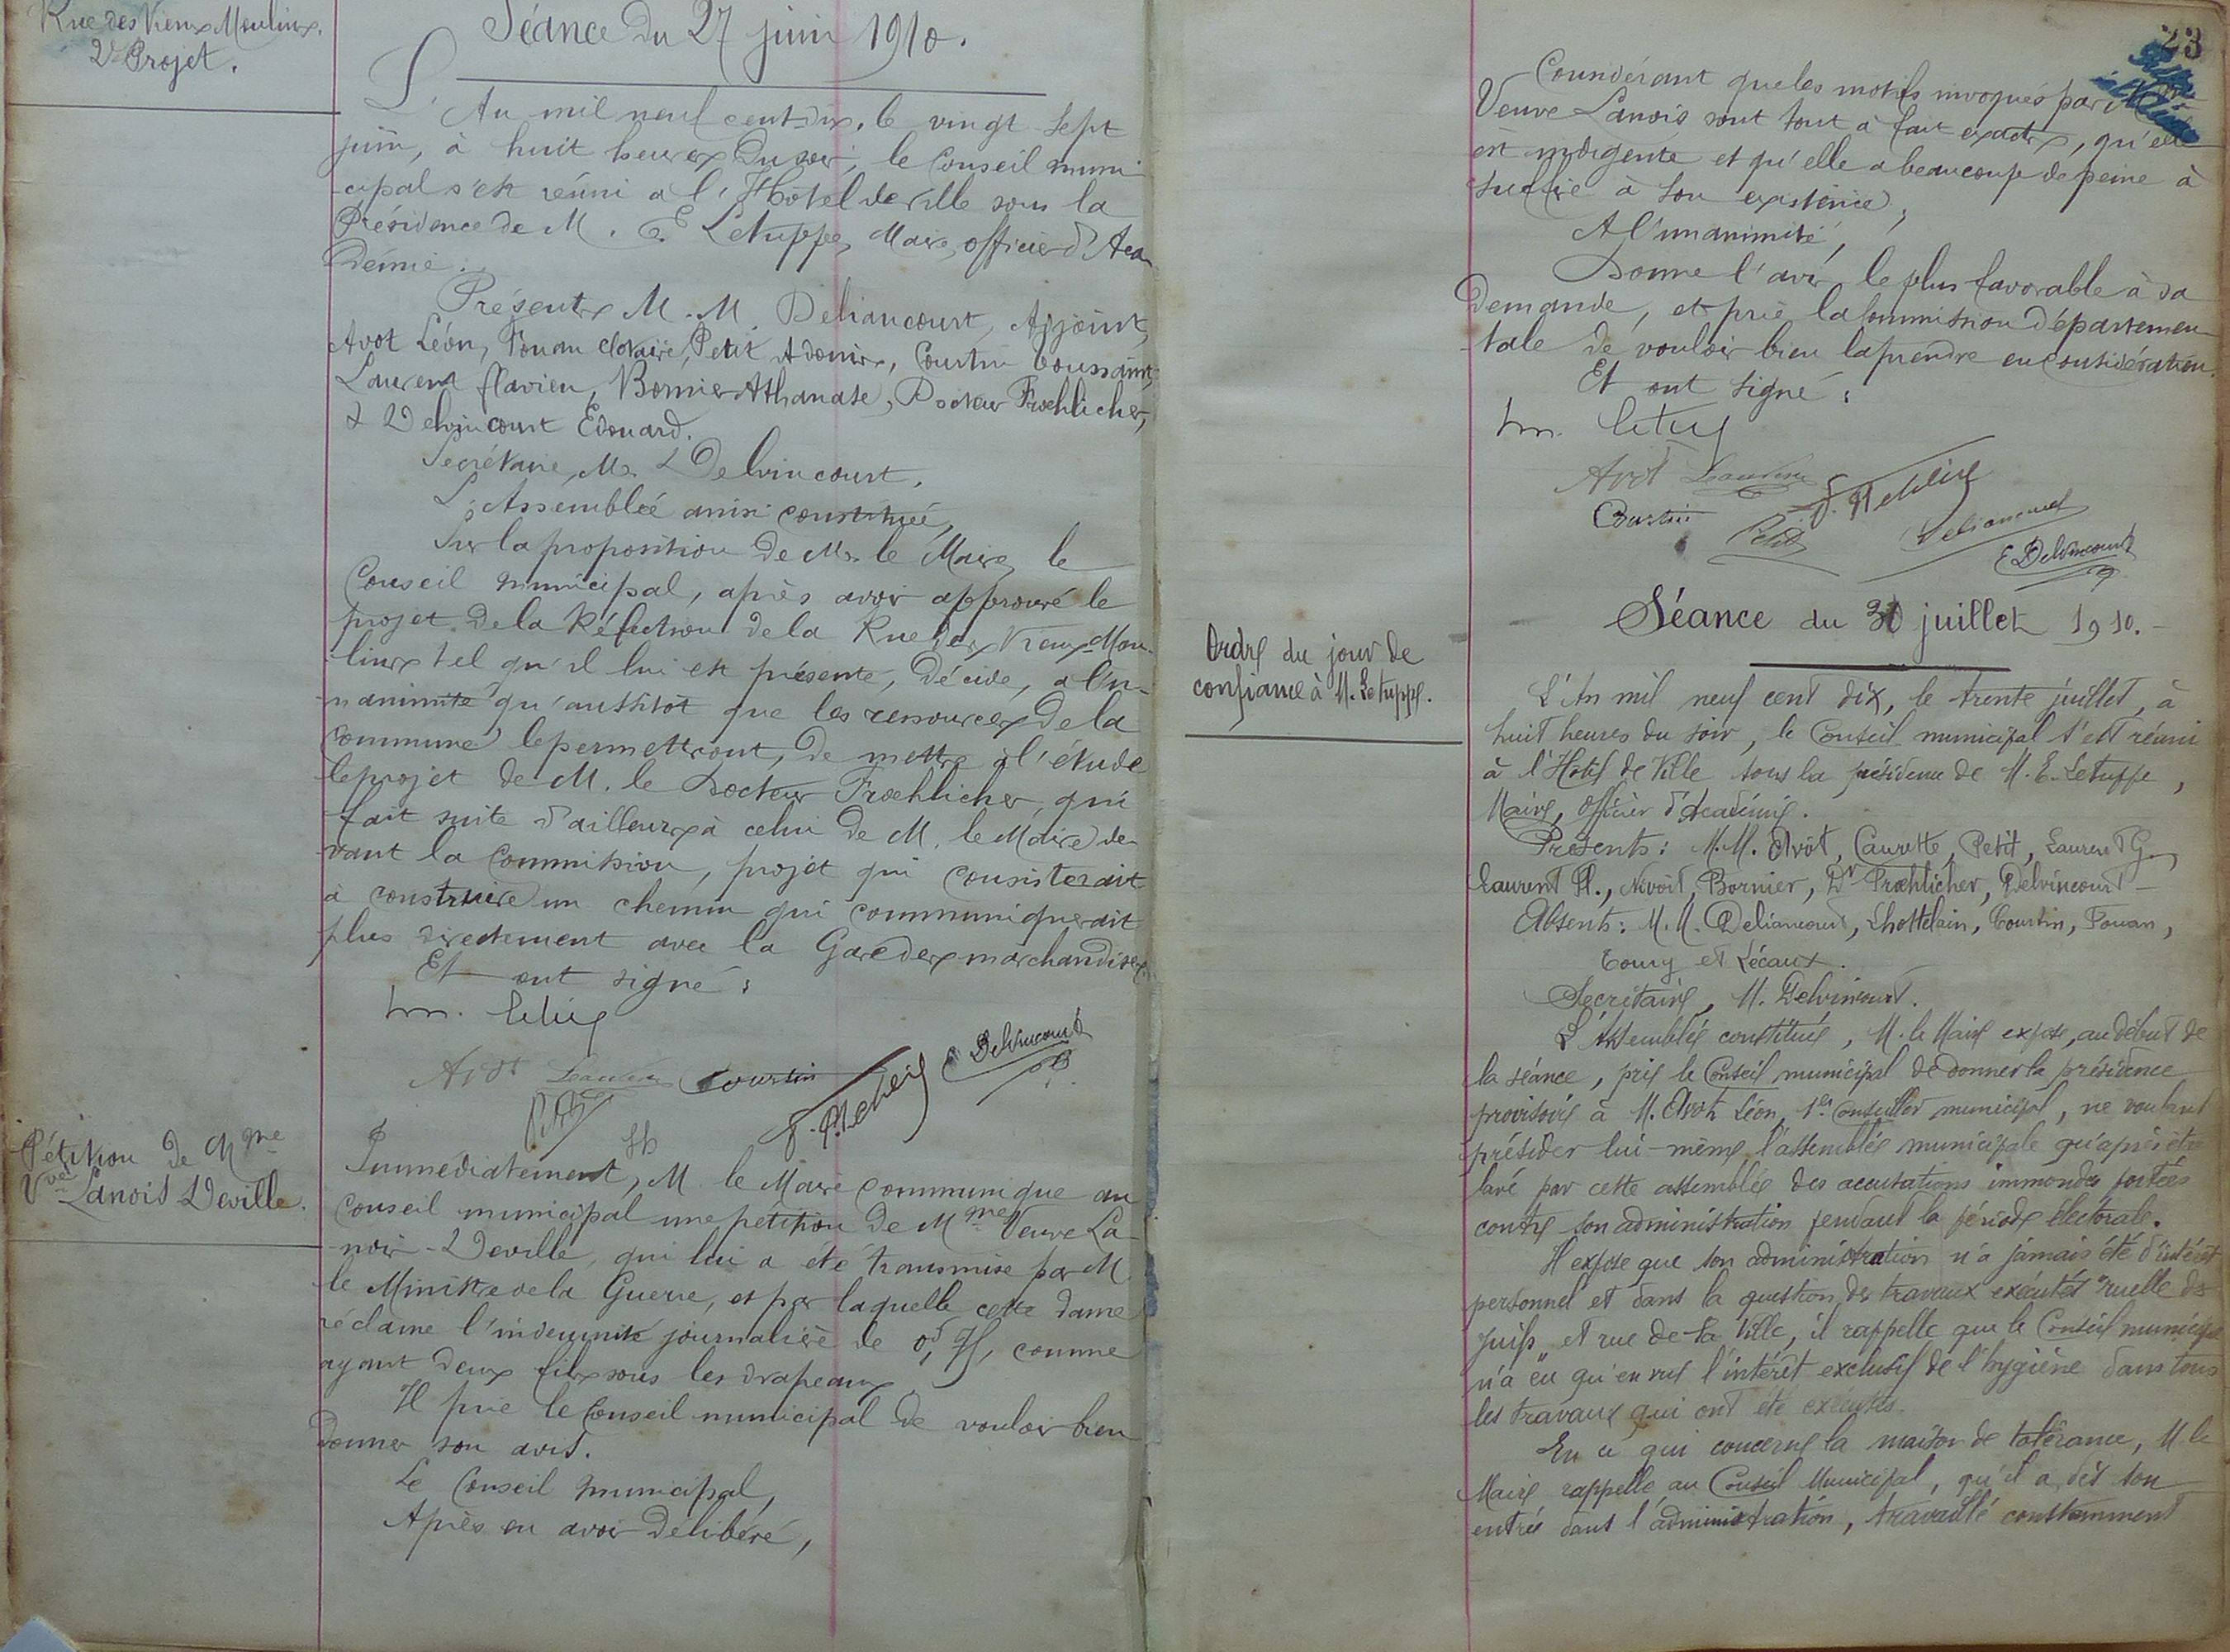 Rue des Vieux Moulins.
2e Projet.
Séance du 27 juin 1910.
L'An mil neuf cent dix, le vingt sept
juin, à huit heures du soir, le Conseil muni-
cipal s'est réuni à l'Hôtel de Ville sous la
Présidence de M. E Letuppe, Maire, officier d'Aca
démie.
Présents M.M. Deliancourt, Adjoint,
Avot Léon, Fouan Clotaire, Petit Adonis, Courtin Toussaint,
Laurent flavien, Bornier Athanase, Docteur Froehlicher,
& Delvincourt Edouard.
Secrétaire, Mr. Delvincourt.
L'Assemblée ainsi constituée,
Sur la proposition de Mr. le Maire, le
Conseil municipal, après avoir approuvé le
projet de la Réfection de la Rue des Vieux-Mou-
lins tel qu'il lui est présenté, Décide, à l'u-
nanimité qu'aussitôt que les ressources de la
commune le permettront, de mettre à l'étude
le projet de M. le Docteur Froehlicher, qui
fait suite d'ailleurs à celui de M. le Maire de-
vant la Commission, projet qui consisterait
à construire un chemin qui communiquerait
plus directement avec la Gare des marchandises.
Et ont signé :
Avot Laurent Courtin E Delvincourt
Petit
Pétition de Mme
Vve Lanois Deville.
Immédiatement, M. le Maire communique au
Conseil municipal une pétition de Mme Veuve La-
nois-Deville, qui lui a été transmise par M.
le Ministre de la Guerre, et par laquelle cette dame
réclame l'indemnité journalière de comme
ayant deux fils sous les drapeaux.
Il prie le Conseil municipal de vouloir bien
donner son avis.
Le Conseil municipal,
Après en avoir délibéré,
23
Considérant que les motifs invoqués par
Veuve Lanois sont tout à fait exacts, qu'elle
est indigente et qu'elle a beaucoup de peine à
suffire à son existence,
A l'unanimité,
Donne l'avis le plus favorable à sa
demande, et prie la Commission départemen-
tale de vouloir bien la prendre en considération.
Et ont signé :
Avot Laurent
Courtin Petit Deliancourt
E Delvincourt
Séance du 30 juillet 1910.-
Ordre du jour de
confiance à M. Letuppe.
L'An mil neuf cent dix, le trente juillet, à
huit heures du soir, le Conseil municipal s'est réuni
à l'Hôtel de Ville sous la présidence de M. E. Letuppe,
Maire, officier d'Académie.
Présents : M.M. Avot, Caurette, Petit, Laurent G.,
Laurent Fl., Nivoit, Bornier, Dr Froehlicher, Delvincourt -
Absents : M.M. Deliancourt, Lhottelain, Courtin, Fouan,
Toury et Lécaux.
Secrétaire, M. Delvincourt.
L'Assemblée constituée, M. le Maire expose, au début de
la séance, prie le Conseil municipal de donner la présidence
provisoire à M. Avot Léon, 1er Conseiller municipal, ne voulant
présider lui-même l'assemblée municipale qu'après être
lavé par cette assemblée des accusations immondes portées
contre son administration pendant la période électorale.
Il expose que son administration n'a jamais été d'intérêt
personnel et dans la question des travaux exécutés "ruelle des
Juifs et rue de la Ville, il rappelle que le Conseil municipal
n'a eu qu'en vue l'intérêt exclusif de l'hygiène dans tous
les travaux qui ont été exécutés.
En ce qui concerne la maison de tolérance, M. le
Maire rappelle au Conseil Municipal, qu'il a, dès son
entrée dans l'administration, travaillé constamment